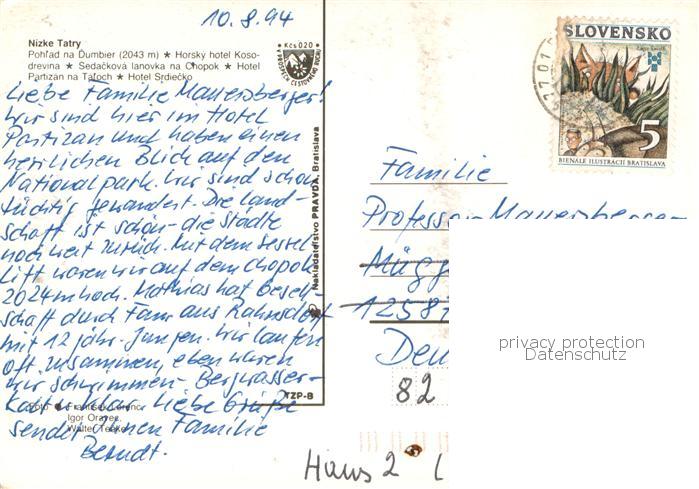 10.8.94
Nízke Tatry
Pohľad na Ďumbier (2043 m) ★ Horský hotel Koso-
drevina ★ Sedačková lanovka na Chopok ★ Hotel
Partizan na Táľoch ★ Hotel Srdiečko
Kčs 0,20
Liebe Familie Mauersberger!
Wir sind hier im Hotel
Partizan und haben einen
herrlichen Blick auf den
Nationalpark. Wir sind schon
tüchtig gewandert. Die Land-
schaft ist schön - die Städte
noch weit zurück. Mit dem Sessel
Lift waren wir auf dem Chopok
2024 m hoch. Mathias hat Gesell-
schaft durch Fam. aus Rahnsdorf
mit 12 jähr. Jungen. Wir laufen
oft zusammen, eben waren
wir schwimmen - Bergwasser-
kalt + klar. Liebe Grüße
sendet Ihnen Familie
Berndt.
Foto ★ František
Igor Oravec,
Nakladateľstvo PRAVDA, Bratislava
TZP-B
SLOVENSKO
5
BIENÁLE ILUSTRÁCIÍ BRATISLAVA
Familie
Professor Mauersberger
Mügg
1258
Deu
privacy protection
Datenschutz
82
Haus 2